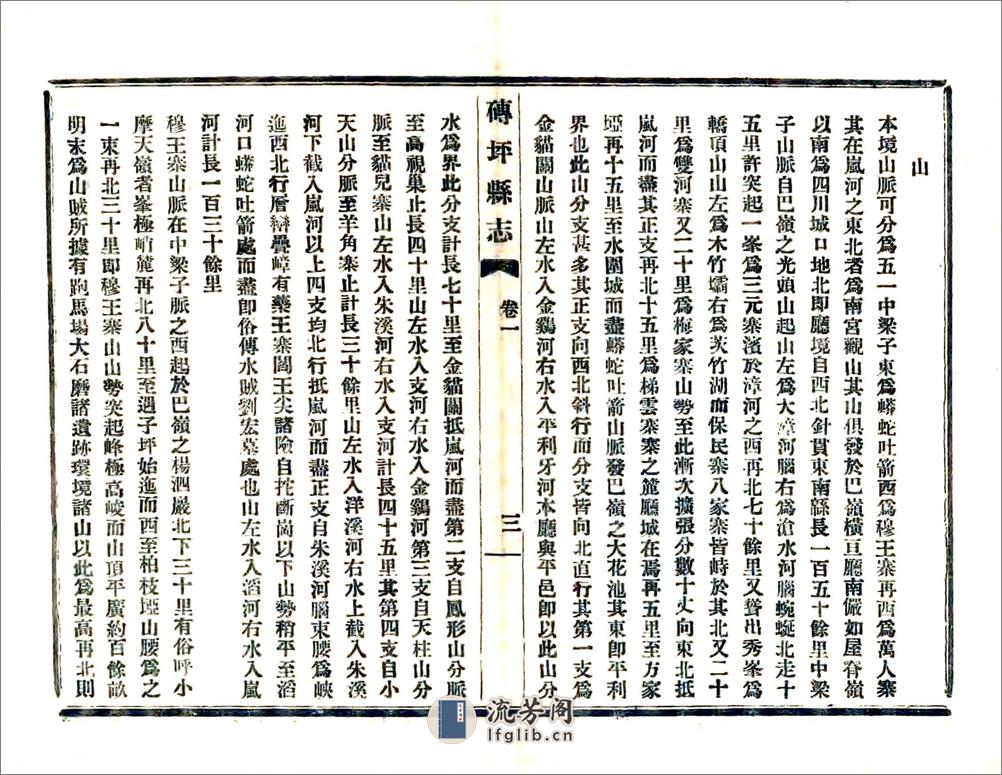 山
本境山脈可分爲五一中梁子東爲蟒蛇吐箭西爲穆王寨再西爲萬人寨
其在嵐河之東北者爲南宮觀山其山俱發於巴嶺橫亘廳南儼如屋脊嶺
以南爲四川城口地北即廳境自西北斜貫東南緜長一百五十餘里中梁
子山脈自巴嶺之光頭山起山左爲大漳河腦右爲滄水河腦蜿蜒北走十
五里許突起一峯爲三元寨濱於漳河之西再北七十餘里又聳出秀峯爲
轎頂山山左爲木竹壩右爲茨竹湖而保民寨八家寨皆峙於其北又二十
里爲雙河寨又二十里爲梅家寨山勢至此漸次擴張分數十丈向東北抵
嵐河而盡其正支再北十五里爲梯雲寨寨之麓廳城在焉再五里至方家
埡再十五里至水圍城而盡蟒蛇吐箭山脈發巴嶺之大花池其東卽平利
界也此山分支甚多其正支向西北斜行而分支皆向北直行其第一支爲
金貓關山脈山左水入金鷄河右水入平利牙河本廳與平邑卽以此山分
磚坪縣志
卷一
三
水爲界此分支計長七十里至金貓關抵嵐河而盡第二支自鳳形山分脈
至高視巢止長四十里山左水入支河右水入金鷄河第三支自天柱山分
脈至貓兒寨山左水入朱溪河右水入支河計長四十五里其第四支自小
天山分脈至羊角寨止計長三十餘里山左水入洋溪河右水上截入朱溪
河下截入嵐河以上四支均北行抵嵐河而盡正支自朱溪河腦東腰爲峽
迤西北行層巒疊嶂有藥王寨閻王尖諸險自挖斷崗以下山勢稍平至滔
河口蟒蛇吐箭處而盡卽俗傳水賊劉宏墓處也山左水入滔河右水入嵐
河計長一百三十餘里
穆王寨山脈在中梁子脈之西起於巴嶺之楊泗巖北下三十里有俗呼小
摩天嶺者峯極峭麓再北八十里至過子坪始迤而西至柏枝埡山腰爲之
一束再北三十里卽穆王寨山山勢突起峰極高峻而山頂平廣約百餘畝
明末爲山賊所據有跑馬場大石磨諸遺跡環境諸山以此爲最高再北則
流芳阁
lfglib.cn